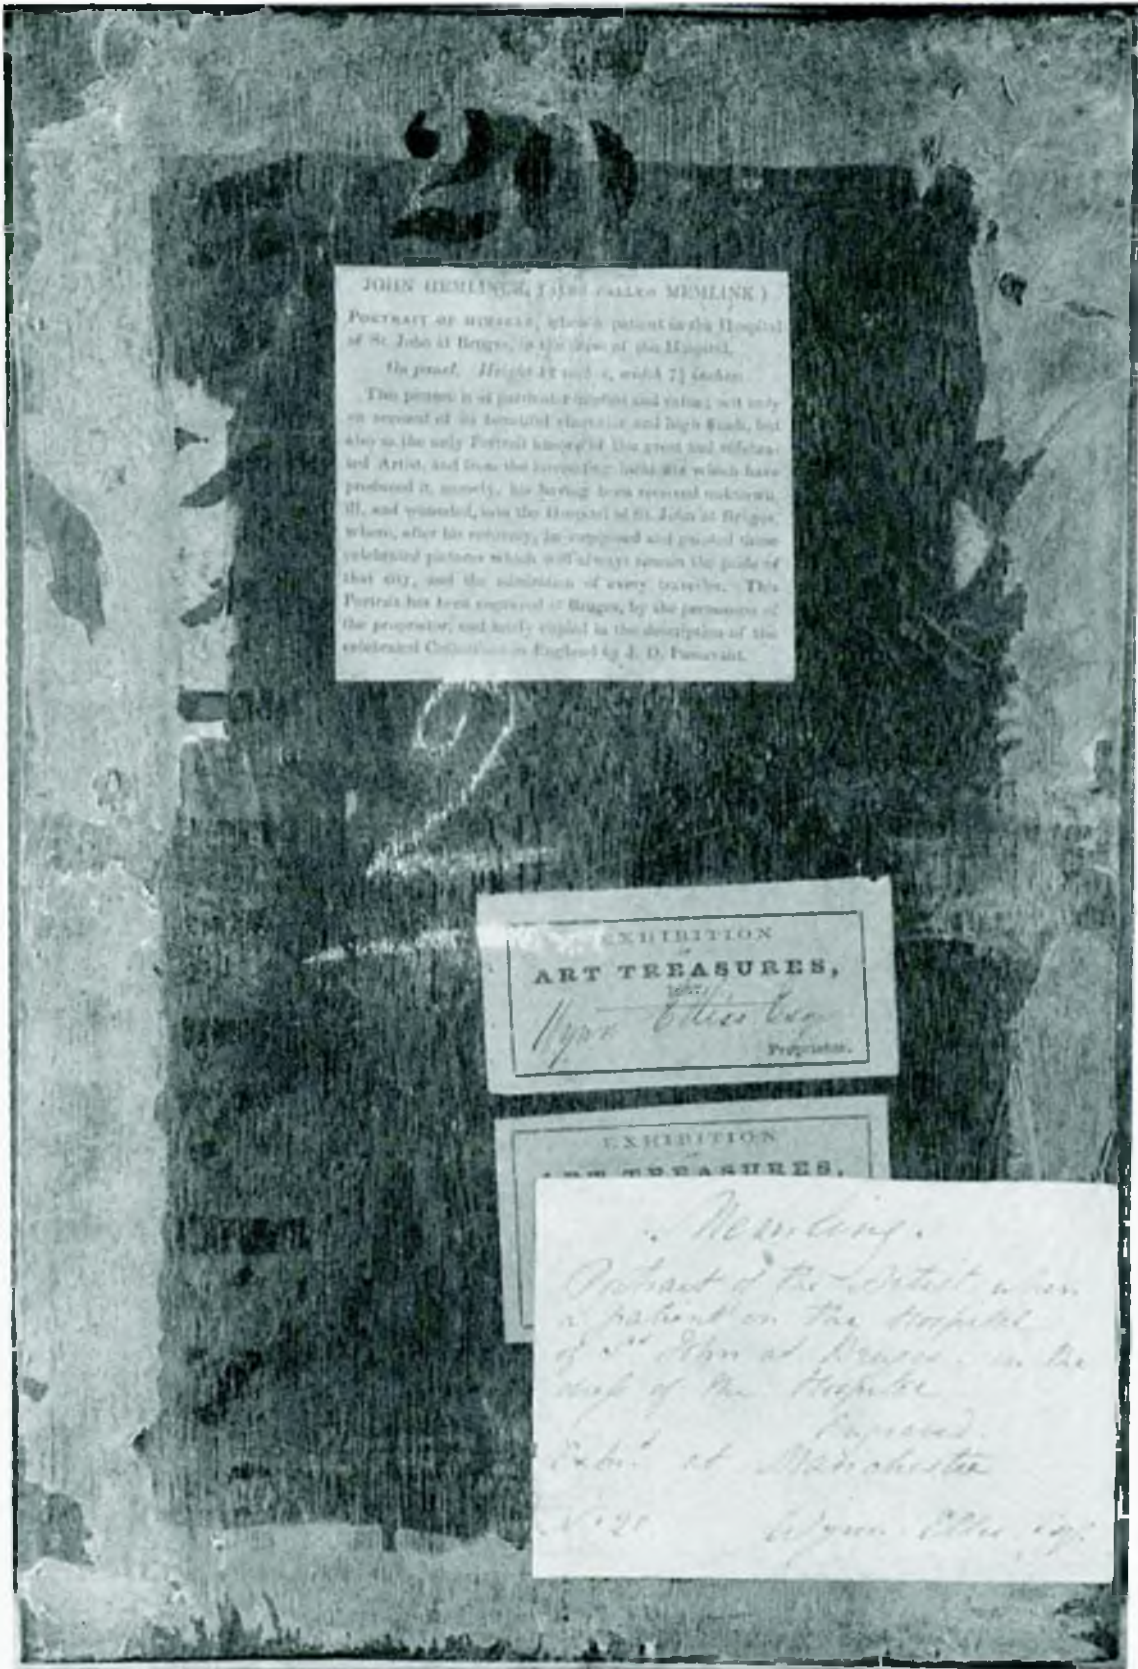 20
JOHN HEMLINCK, (ALSO CALLED MEMLINK)
PORTRAIT OF HIMSELF, when a patient in the Hospital
of St. John at Bruges, in the dress of the Hospital.
On panel. Height 12 inches, width 7½ inches.
This picture is of particular interest and value; not only
on account of its beautiful character and high finish, but
also as the only Portrait known of this great and celebra-
ted Artist, and from the interesting which have
produced it, namely, his having been received unknown,
ill, and wounded, into the Hospital of St. John at Bruges,
where, after his recovery, he composed and painted those
celebrated pictures which will always remain the pride of
that city, and the admiration of every traveller. This
Portrait has been engraved at Bruges, by the permission of
the proprietor, and lately copied in the description of the
celebrated Collections in England by J. D. Passavant.
2
EXHIBITION
OF
ART TREASURES,
1857.
Wynn Ellis Esq
Proprietor.
EXHIBITION
ART TREASURES,
Memling.
Portrait of the Artist when
a patient in the Hospital
of St John at Bruges in the
dress of the Hospital
Engraved.
Exhd at Manchester
No 20 Wynn Ellis Esq.